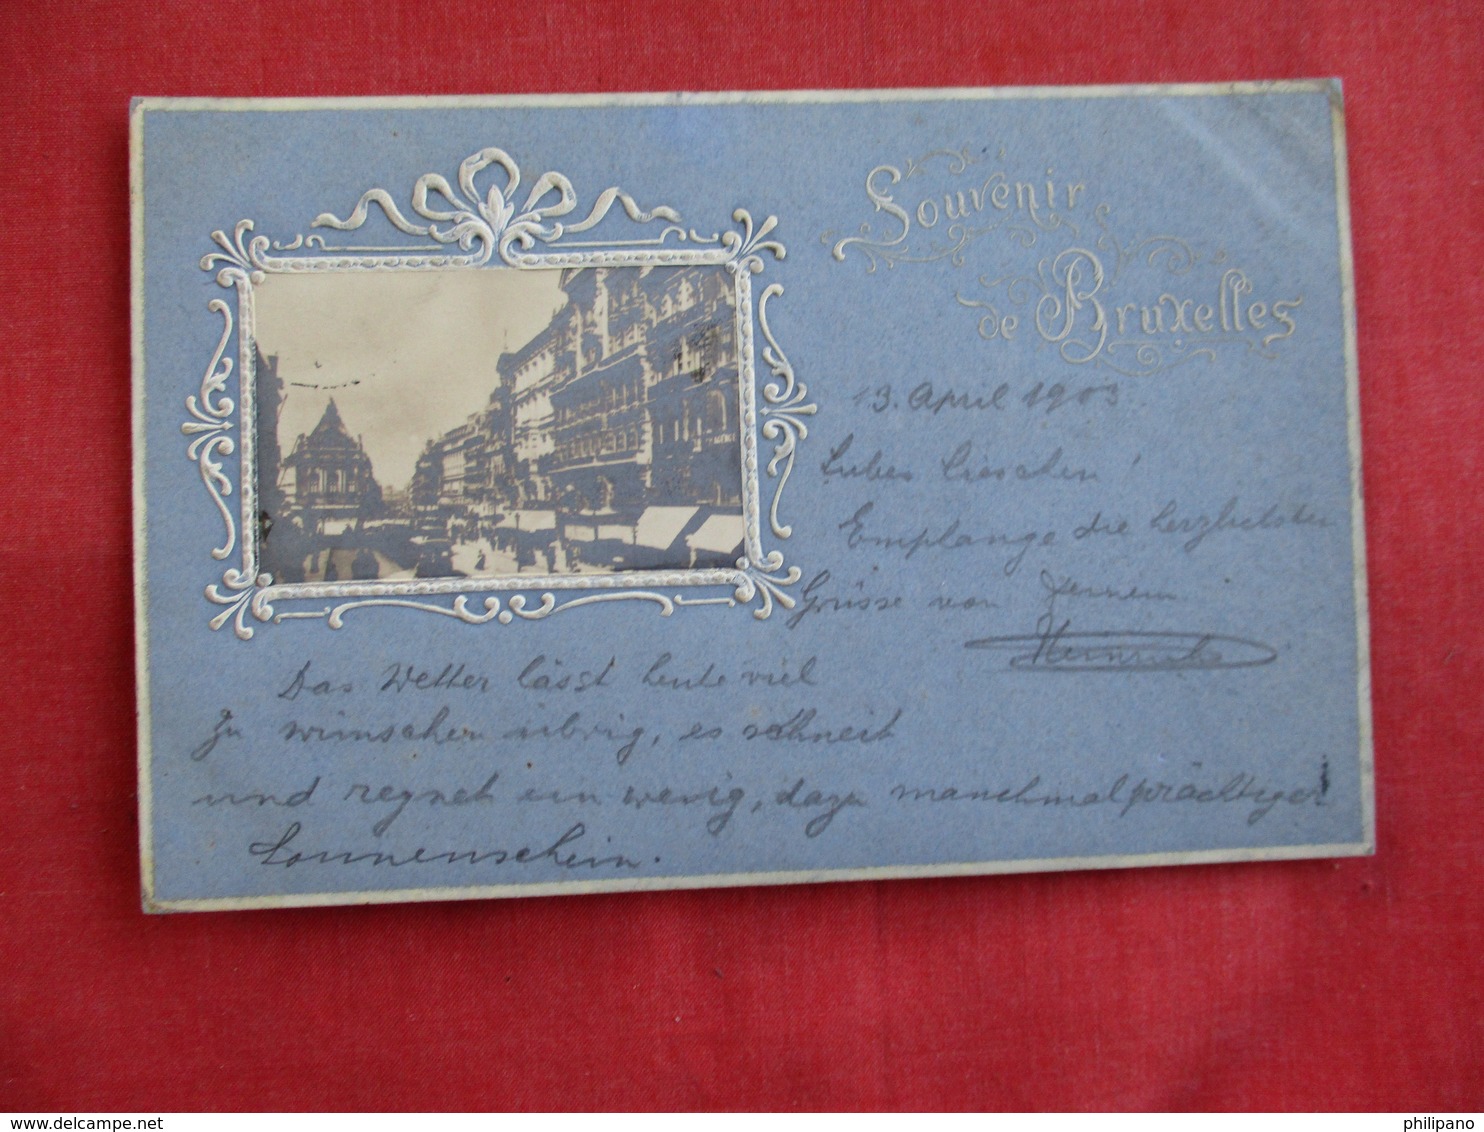 Souvenir
de Bruxelles
13. April 1903
Liebes Lieschen!
Empfange die herzlichsten
Grüsse von Deinem
Heinrich
Das Wetter lässt heute viel
zu wünschen übrig, es schneit
und regnet ein wenig, dazu manchmal prächtiger
Sonnenschein.
www.delcampe.net
philipano